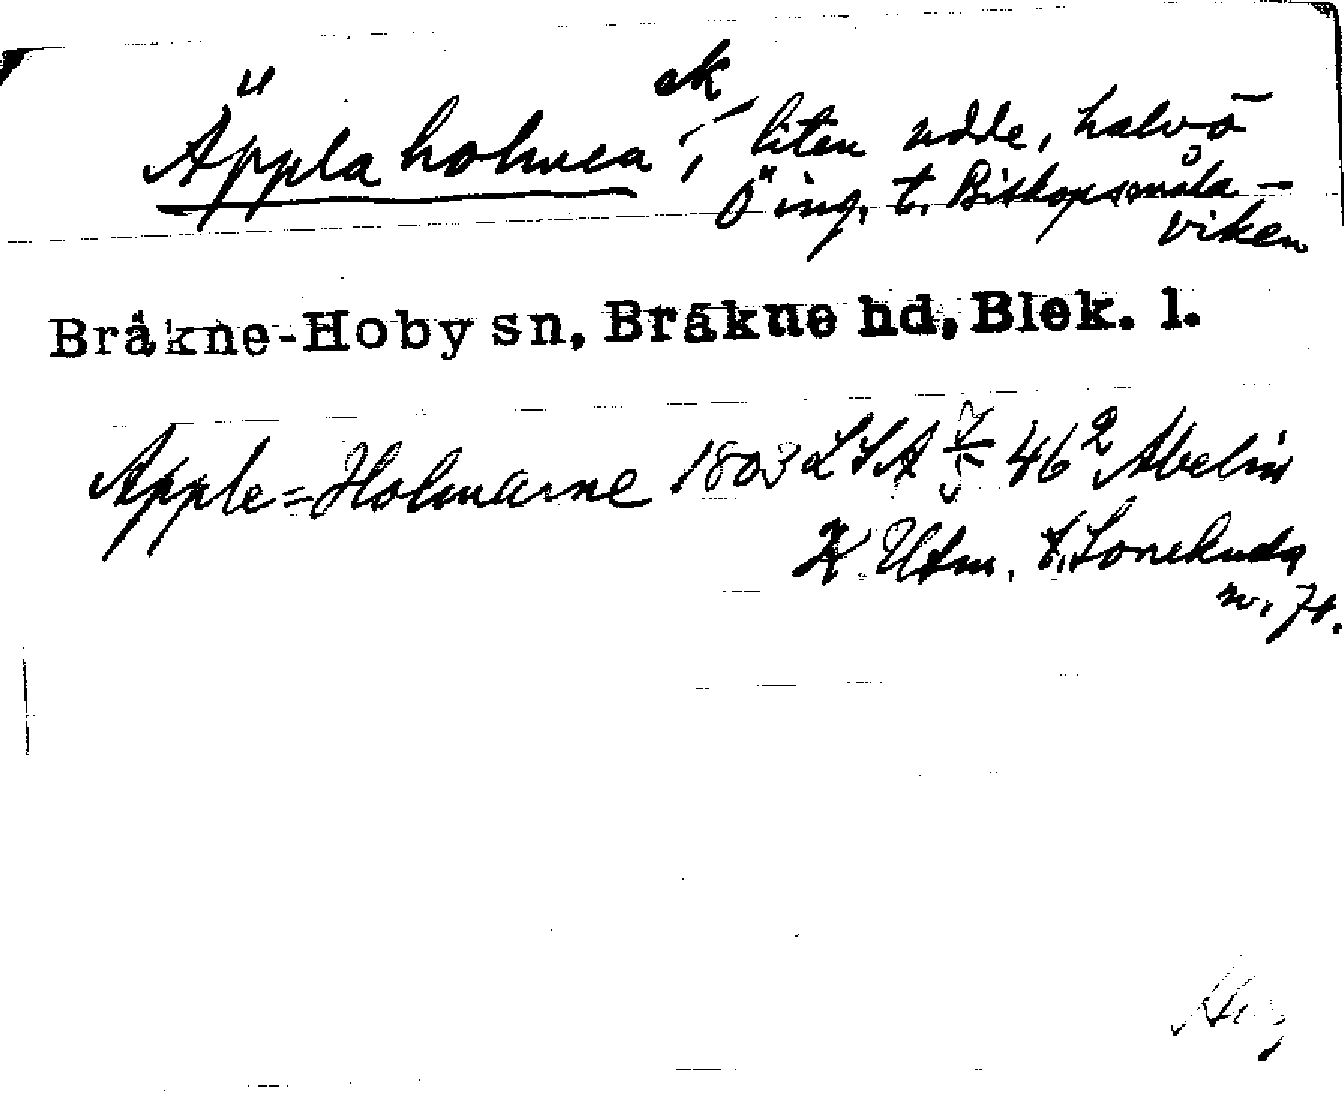 Äppla holmea ek /, liten udde, halvö
Ö ing. t. Biskopsmåla-
viken
Bräkne-Hoby sn, Bräkne hd, Blek. l.
Apple=Holmarne 1803 LSA 46² Abelin
K. Utm. t. Lonekuda